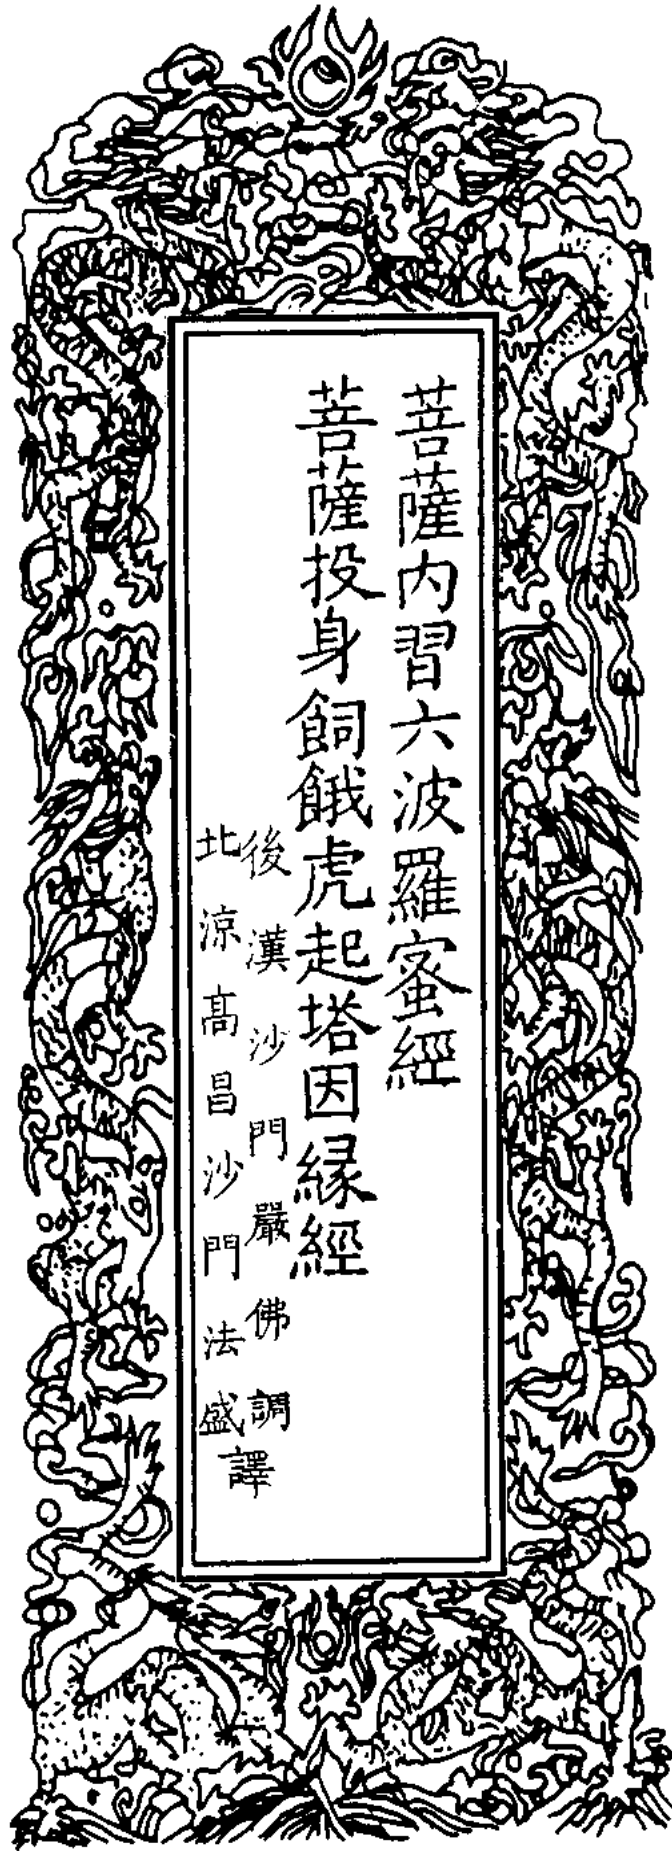 菩薩内習六波羅蜜經
菩薩投身飼餓虎起塔因縁經
後漢沙門嚴佛調
北涼髙昌沙門法盛
譯